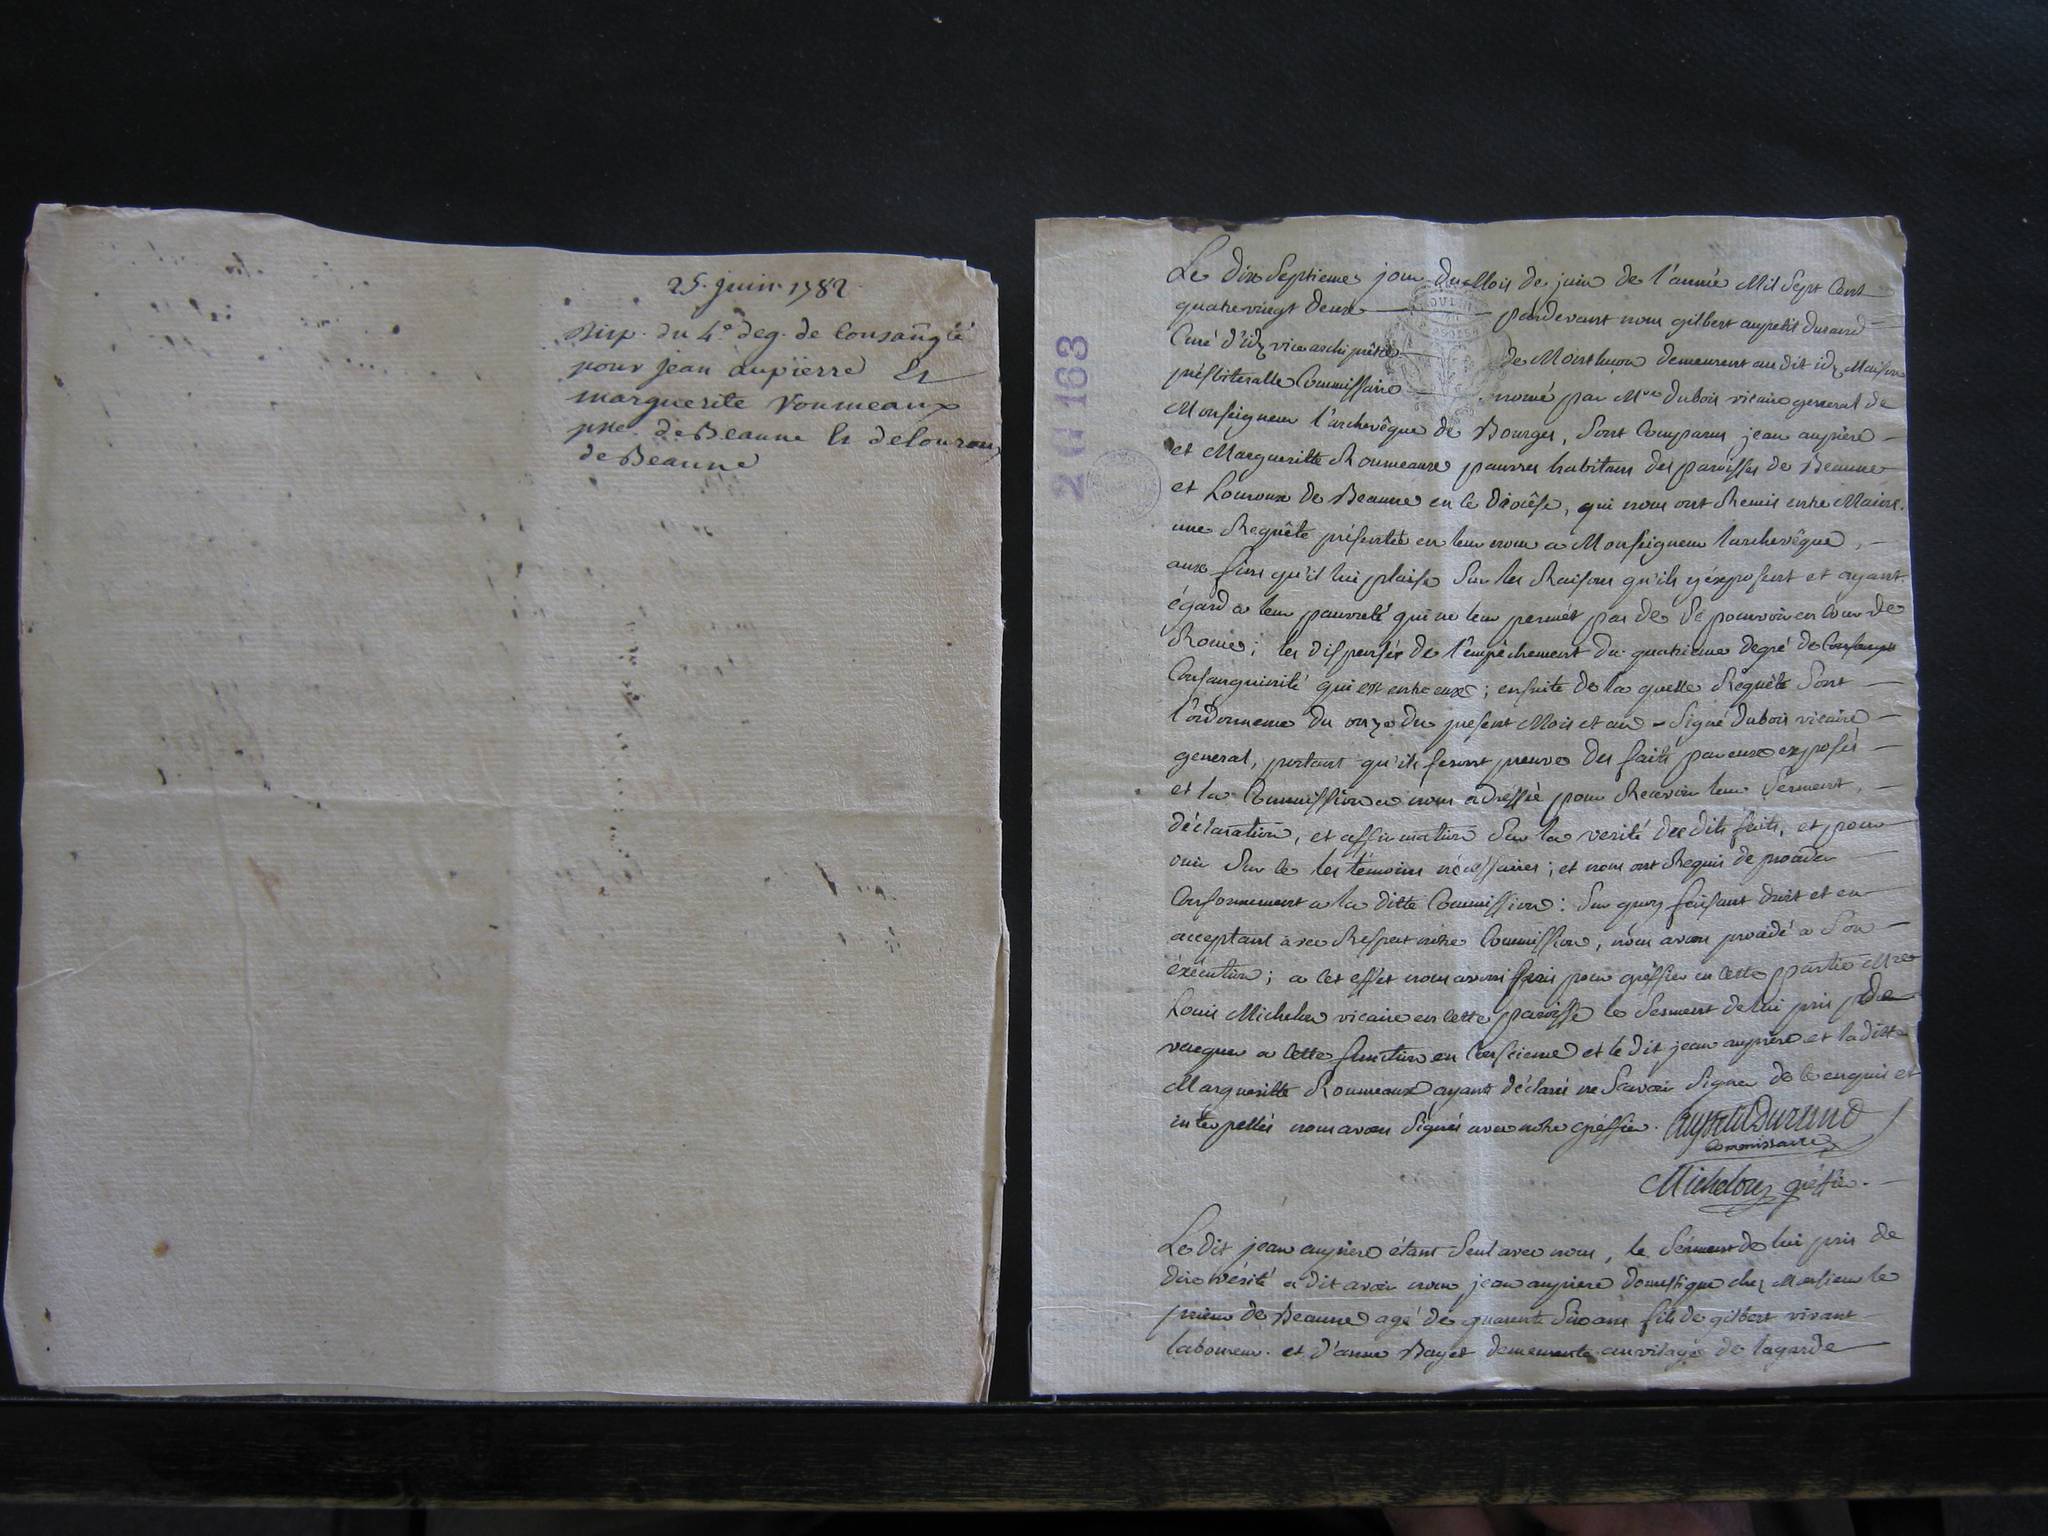 25. juin. 1782
Disp. du 4.e deg. de Consang.té
pour jean aupierre et
marguerite Roumeaux
psse. de Beaune et de Louroux
de Beaune
2 G 163
Le dix Septieme jour du Mois de juin de l'année Mil Sept Cent
quatrevingt deux pardevant nous gilbert aupetit durand
Curé d'idz vice archiprêtre de Montluçon demeurent au dit idz Maison
présbiteralle Commissaire nomé par Mre dubois vicaire general de
Monseigneur l'archevêque de Bourges, Sont Comparus jean aupiere
et Margueritte Roumeaux pauvres habitans des paroisses de Beaune
et Louroux de Beaune en ce diocêse, qui nous ont Remis entre Mains
une Requête présentée en leur nom a Monseigneur l'archevêque,
aux fins qu'il lui plaise Sur les Raisons qu'ils y exposent et ayant
égard a leur pauvreté qui ne leur permét pas de Se pourvoir en Cour de
Rome; les dispenser de l'empêchement du quatrieme degré de
Consanguinité qui est entre eux; ensuite de la quelle Requête Sont
l'ordonnence du onze du present Mois et an Signé dubois vicaire
general, portant qu'ils feront preuve des faits par eux exposés
et la Commission a nous adressée pour Recevoir leur Serment,
déclaration, et affirmation Sur la verité des dits faits, et pour
ouir Sur ce les témoins nécessaires; et nous ont Requis de proceder
Conformement a la ditte Commission: Sur quoy faisant droit et en
acceptant avec Respect notre Commission, nous avons procédé a Son
éxécution; a cet effet nous avons pris pour gréffier en cette partie Mre
Louis Michelon vicaire en cette paroisse le Serment de lui pris de
vacquer a cette fonction en Conscience et le dit jean aupiere et la ditte
Margueritte Roumeaux ayant déclaré ne Scavoir Signer de ce enquis et
interpellés nous avons Signés avec notre gréffier. aupetit Durand
Commissaire
Michelon gréffier.
Le dit jean aupiere étant Seul avec nous, le Serment de lui pris de
dire vérité a dit avoir nom jean aupiere domestique chez Monsieur le
prieur de Beaune agé de quarente Six ans fils de gilbert vivant
laboureur. et d'anne Bayet demeurante au vilage de lagarde